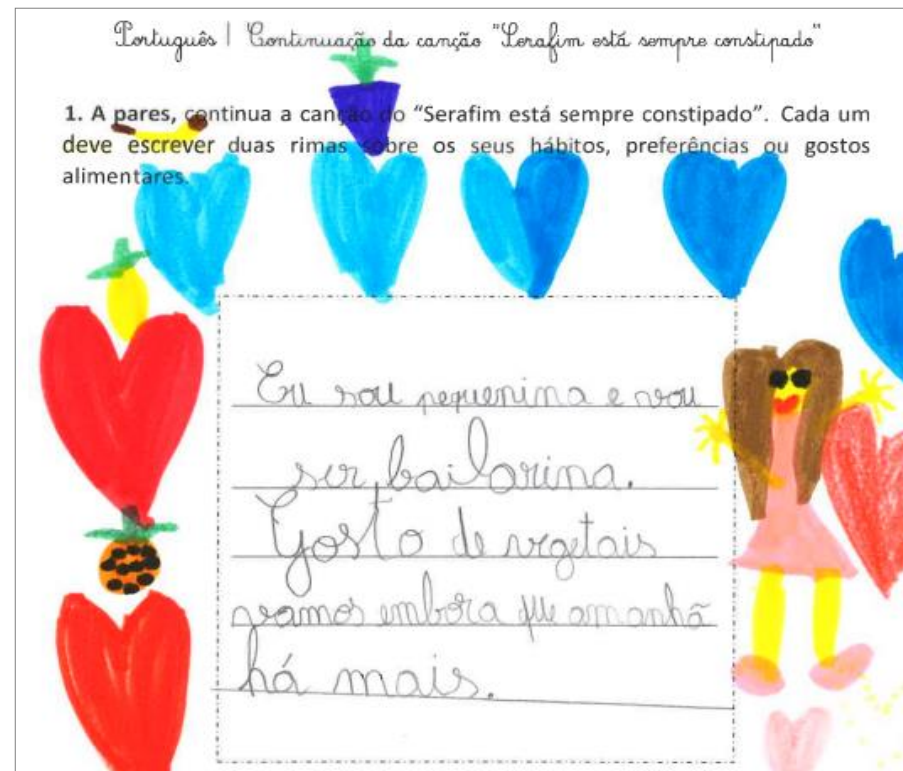 Português | Continuação da canção "Serafim está sempre constipado"
1. A pares, continua a canção do “Serafim está sempre constipado”. Cada um
deve escrever duas rimas sobre os seus hábitos, preferências ou gostos
alimentares.
Eu sou pequenina e vou
ser bailarina.
Gosto de vegetais
vamos embora que amanhã
há mais.